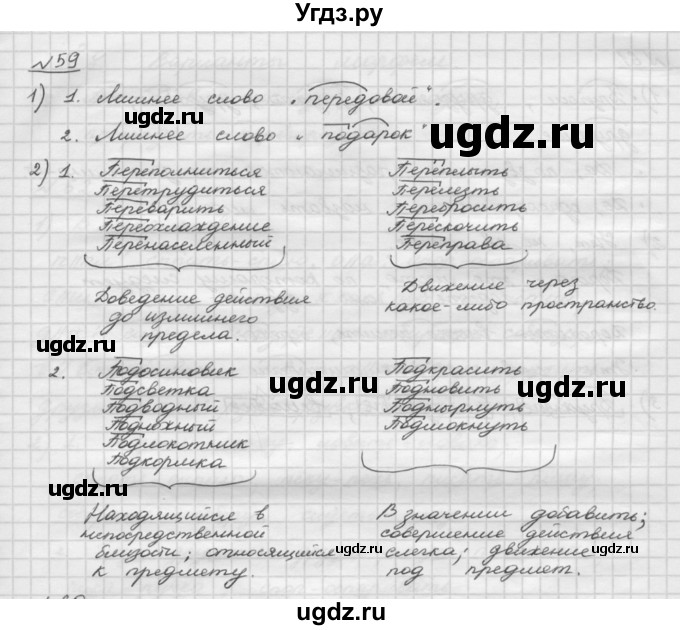 УГДЗ.РУ
№59
1) 1. Лишнее слово „передовой".
2. Лишнее слово „подарок"
ugdz.ru
2) 1. Переполниться Переплыть
Перетрудиться Перелезть
Переварить Перебросить
Переохлаждение Перескочить
Перенаселенный Переправа
ugdz.ru ugdz.ru
Доведение действия до излишнего предела.
Движение через какое-либо пространство.
ugdz.ru
2. Подосиновик Подкрасить
Подсветка Подновить
Подводный Поднырнуть
Подножный Подмокнуть
Подлокотник
Подкормка
ugdz.ru ugdz.ru
ugdz.ru
Находящийся в непосредственной близости; относящийся к предмету.
В значении добавить; совершение действия слегка; движение под предмет.
ugdz.ru ugdz.ru
ugdz.ru